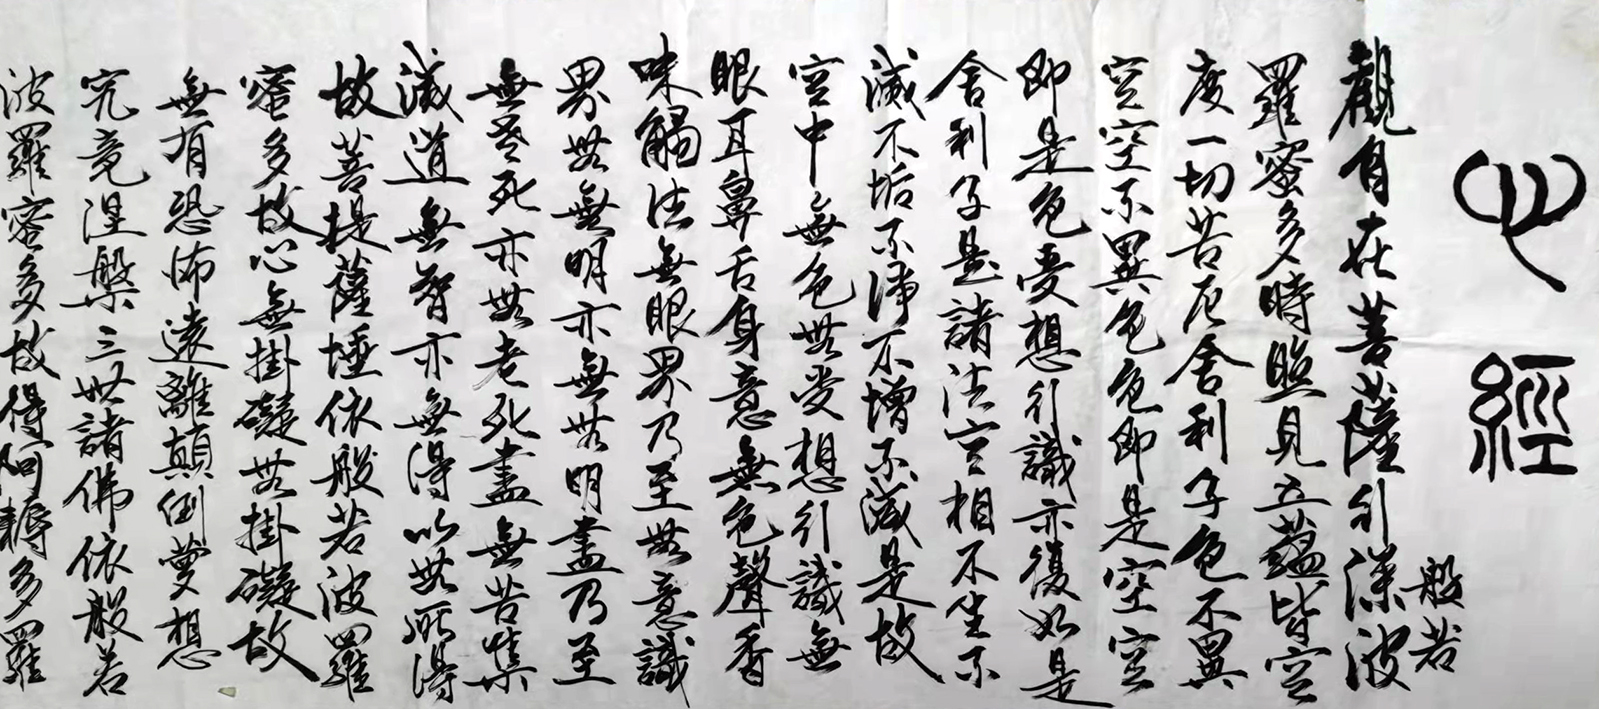 心經
觀自在菩薩行深波
般若
羅蜜多時照見五蘊皆空
度一切苦厄舍利子色不異
空空不異色色即是空空
即是色受想行識亦復如是
舍利子是諸法空相不生不
滅不垢不淨不增不減是故
空中無色無受想行識無
眼耳鼻舌身意無色聲香
味觸法無眼界乃至無意識
界無無明亦無無明盡乃至
無老死亦無老死盡無苦集
滅道無智亦無得以無所得
故菩提薩埵依般若波羅
蜜多故心無掛礙無掛礙故
無有恐怖遠離顛倒夢想
究竟涅槃三世諸佛依般若
波羅蜜多故得阿耨多羅